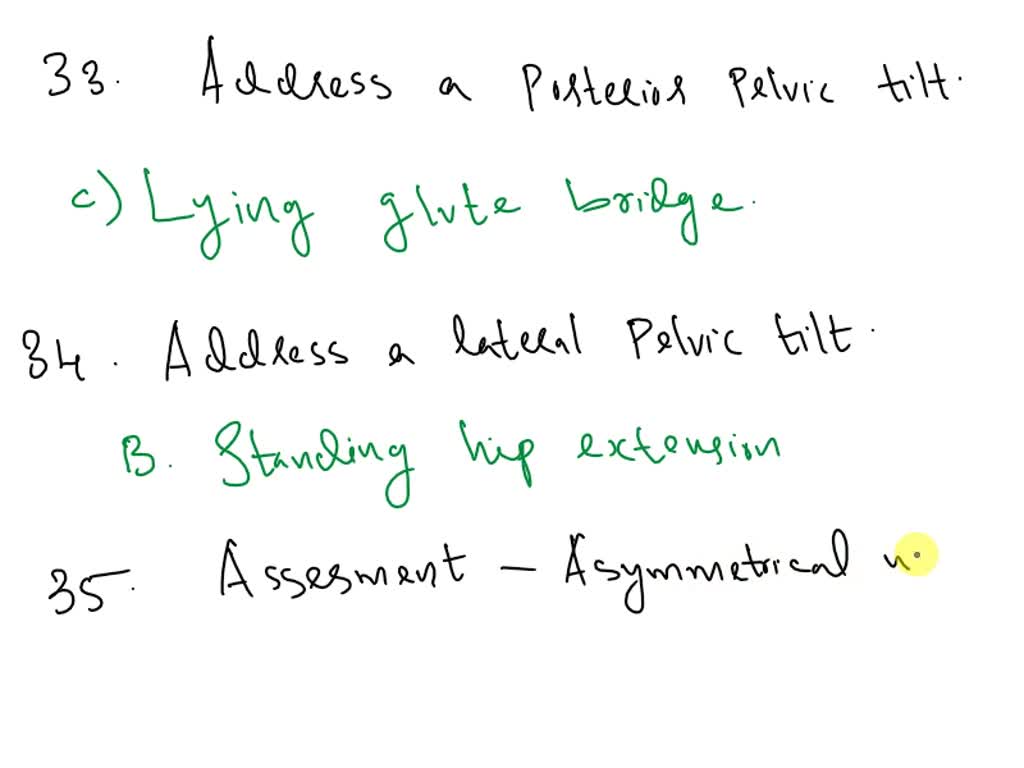 33. Address a Posterior Pelvic tilt.
c) Lying glute bridge.
34. Address a lateral Pelvic tilt.
B. Standing hip extension
35. Assesment - Asymmetrical